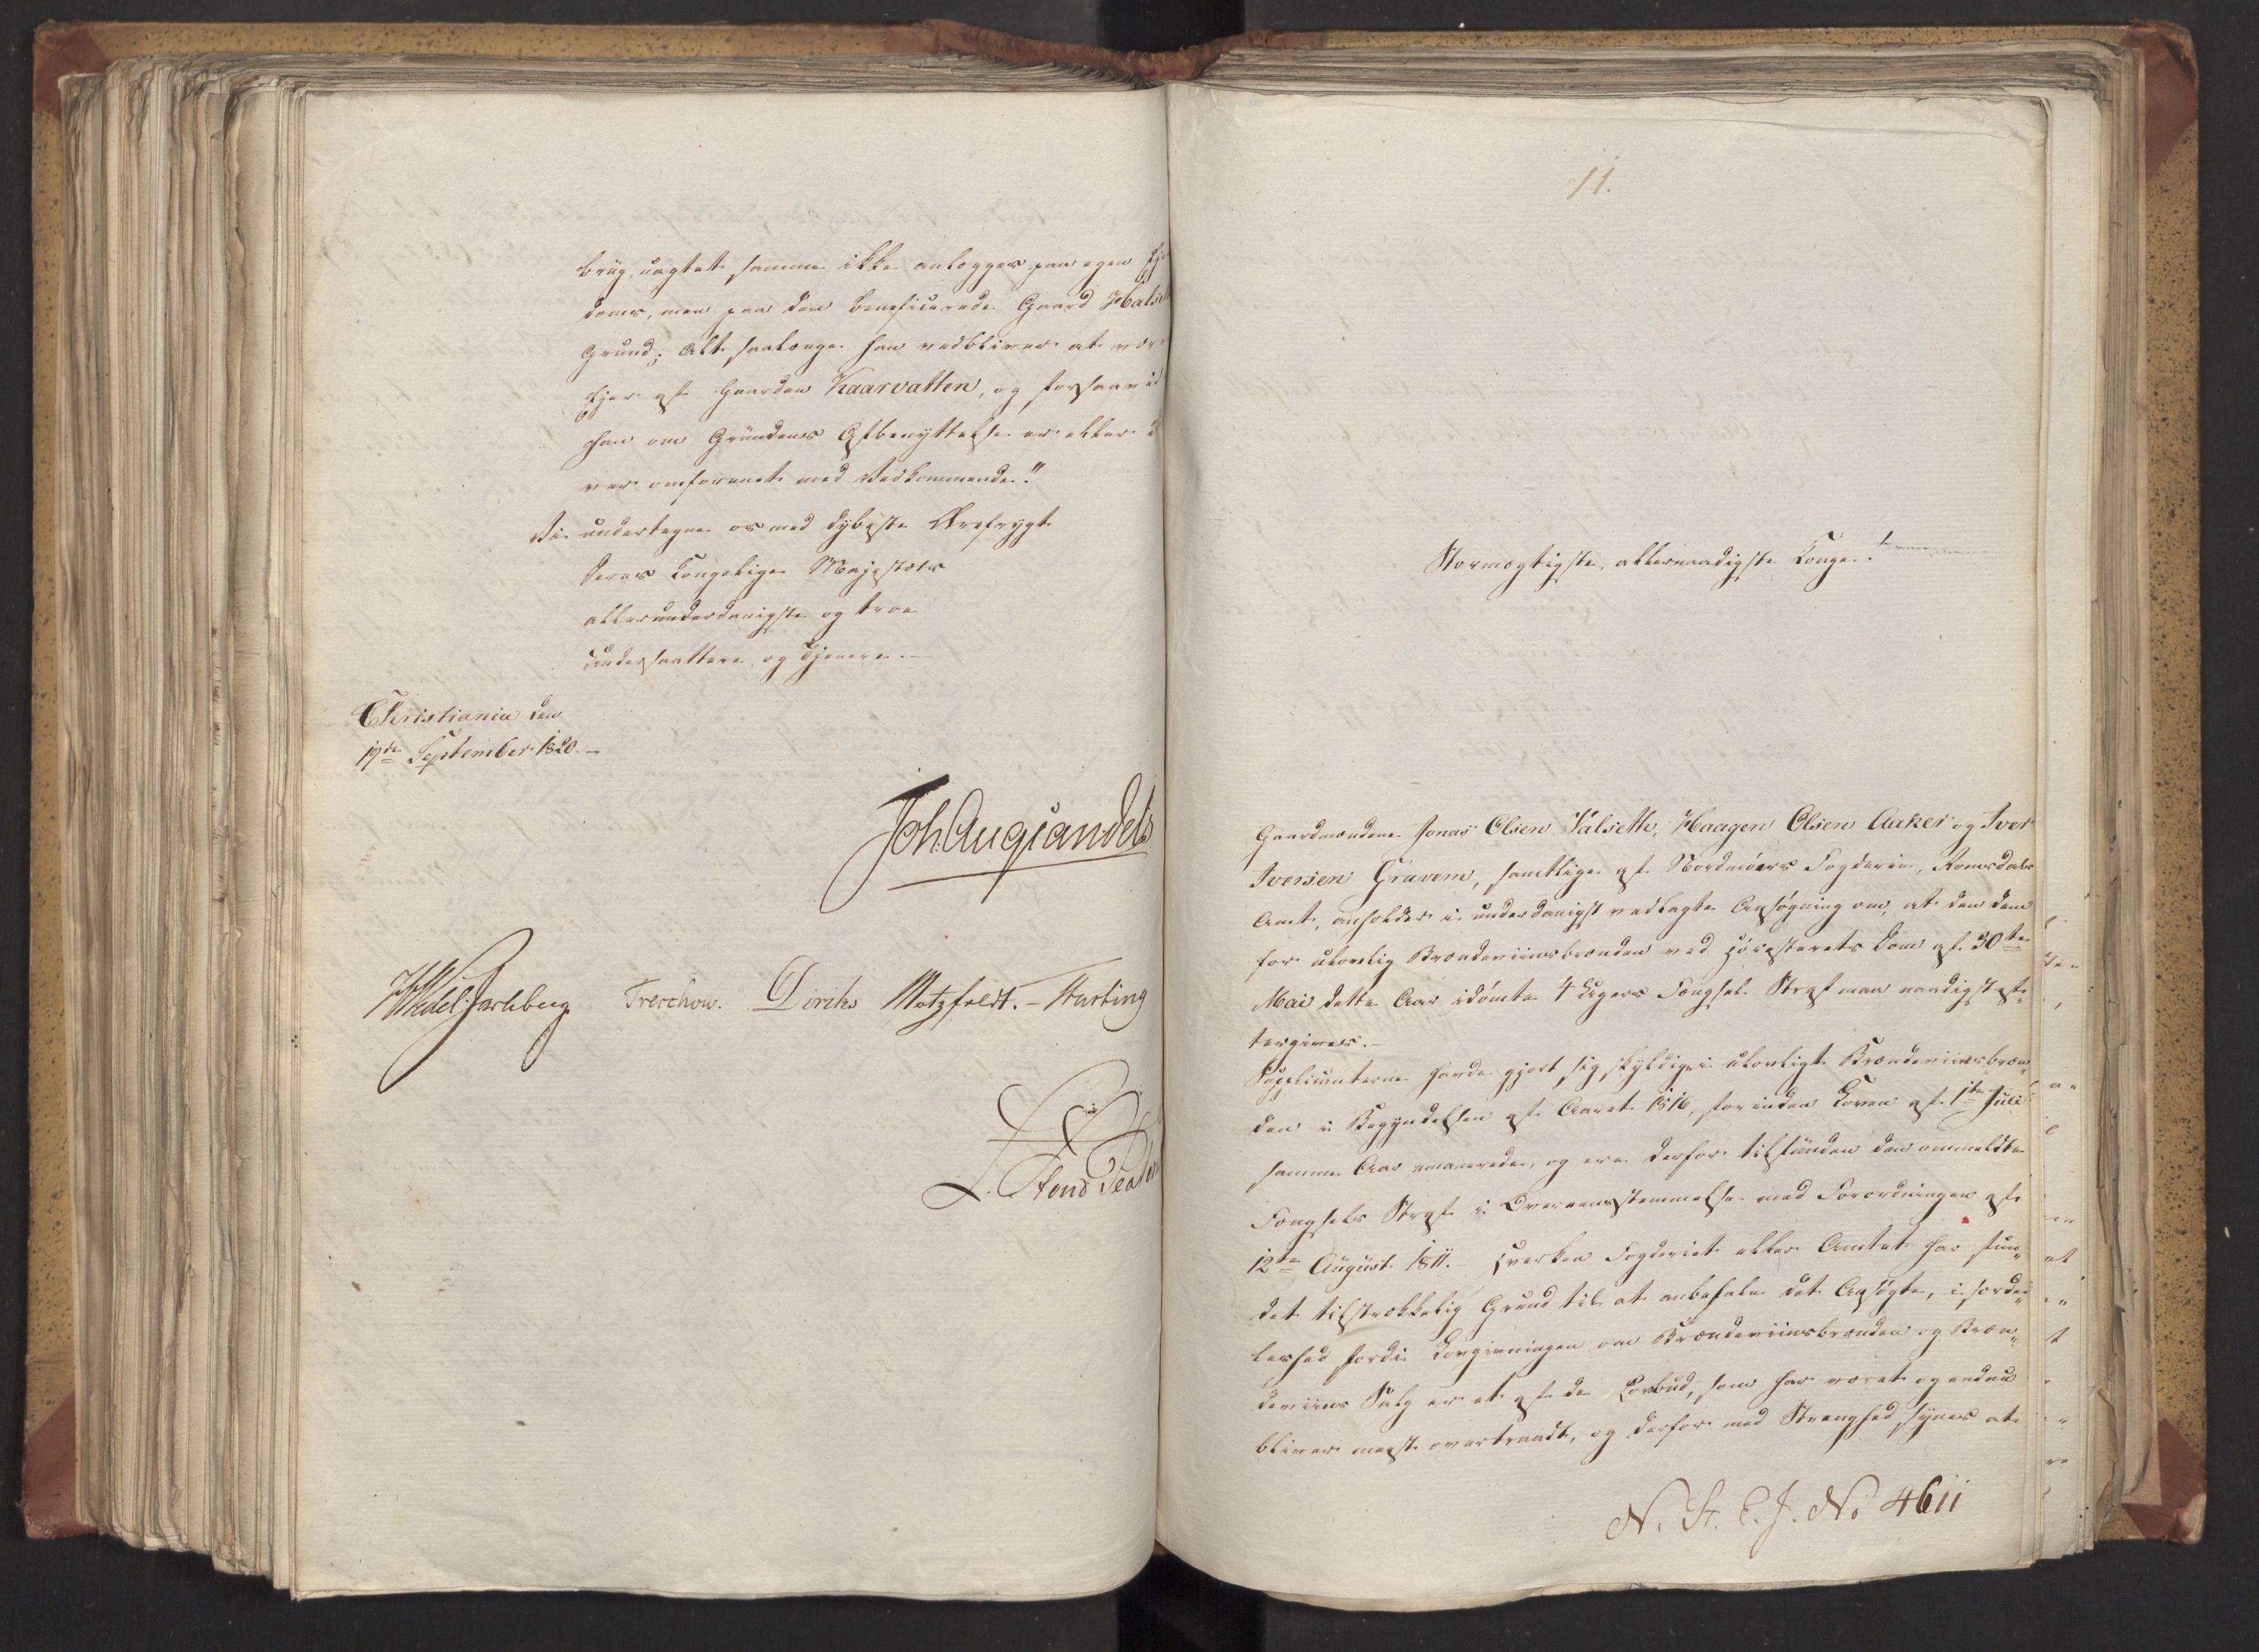 brug, uagtet samme ikke anlægges paa egen Ej
doms, men paa den beneficerede Gaard Halset
Grund; Alt saalænge han vedbliver at være
Ejer af Gaarden Kaarvatten, og forsaavid
han om Grundens Afbenyttelse er eller
ver omforenet med Vedkommende."
Vi undertegne os med dybeste Ærefrygt
Deres Kongelige Majestæts
allerunderdanigste og troe
Undersaattere og Tjenere.
Christiania den
19de September 1820.
Joh. Aug. Sandels
HWedel Jarlsberg Treschow. Diriks Motzfeldt. Harting
11.
Stormægtigste, allernaadigste Konge!
Gaardmændene Jonas Olsen Valsette, Haagen Olsen Aukes og Iver
Iversen Gravem, samtlige af Nordmöers Fogderie, Romsdals
Amt, anholder i underdanigst vedlagte Ansögning om, at den dem
for ulovlig Brændeviinsbrænden ved Höiesterets Dom af 30te
Mai dette Aar idömte 4 Ugers Fængsel Straf maa naadigst ef-
tergives.
Supplicanterne havde gjort sig skyldige i ulovligt Brændeviinsbræn-
den i Begyndelsen af Aaret 1816, forinden Loven af 1te Juli
samme Aar emanerede, og ere derfor tilfunden den ommeldte
Fængsels Straf i Overeensstemmelse med Forordningen af
12te August 1811. Hverken Fogderiet eller Amtet har fun-
det tilstrækkelig Grund til at anbefale det Ansögte, i særde-
leshed fordi Lovgivningen om Brændeviinsbrænden og Bræn-
deviins Salg er et af de Lovbud, som har været og endnu
bliver meest overtraadt, og derfor med Strenghed synes at
N. St. E. J. No 4611